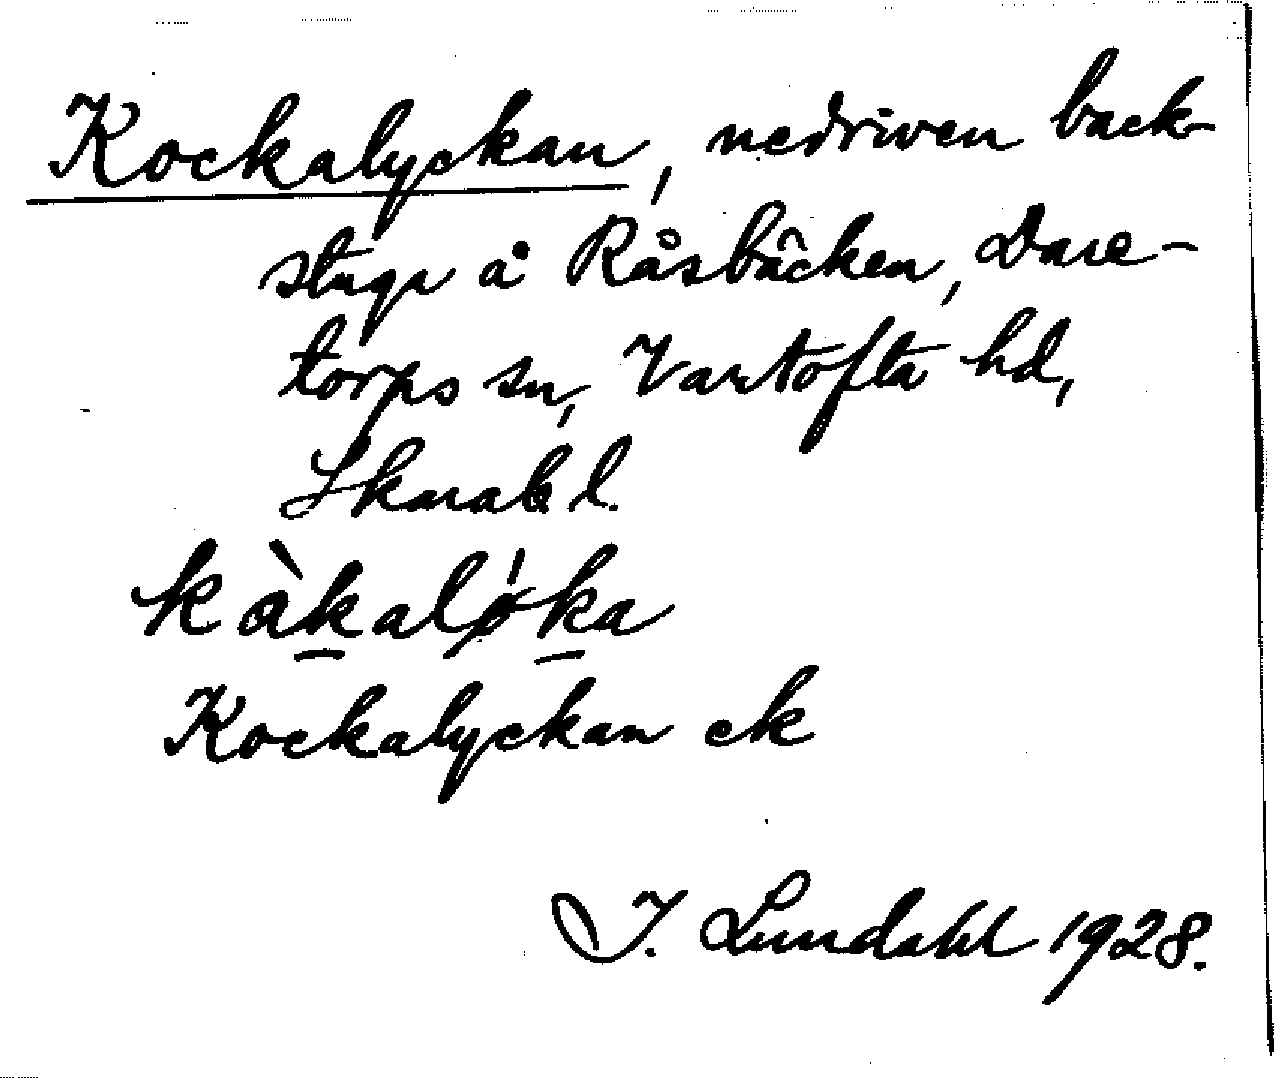 Kockalyckan, nedriven back-
stuga å Råsbäcken, Dare-
torps sn, Vartofta hd,
Skarab l.
kàkaló̸ka
Kockalyckan ek
I. Lundahl 1928.